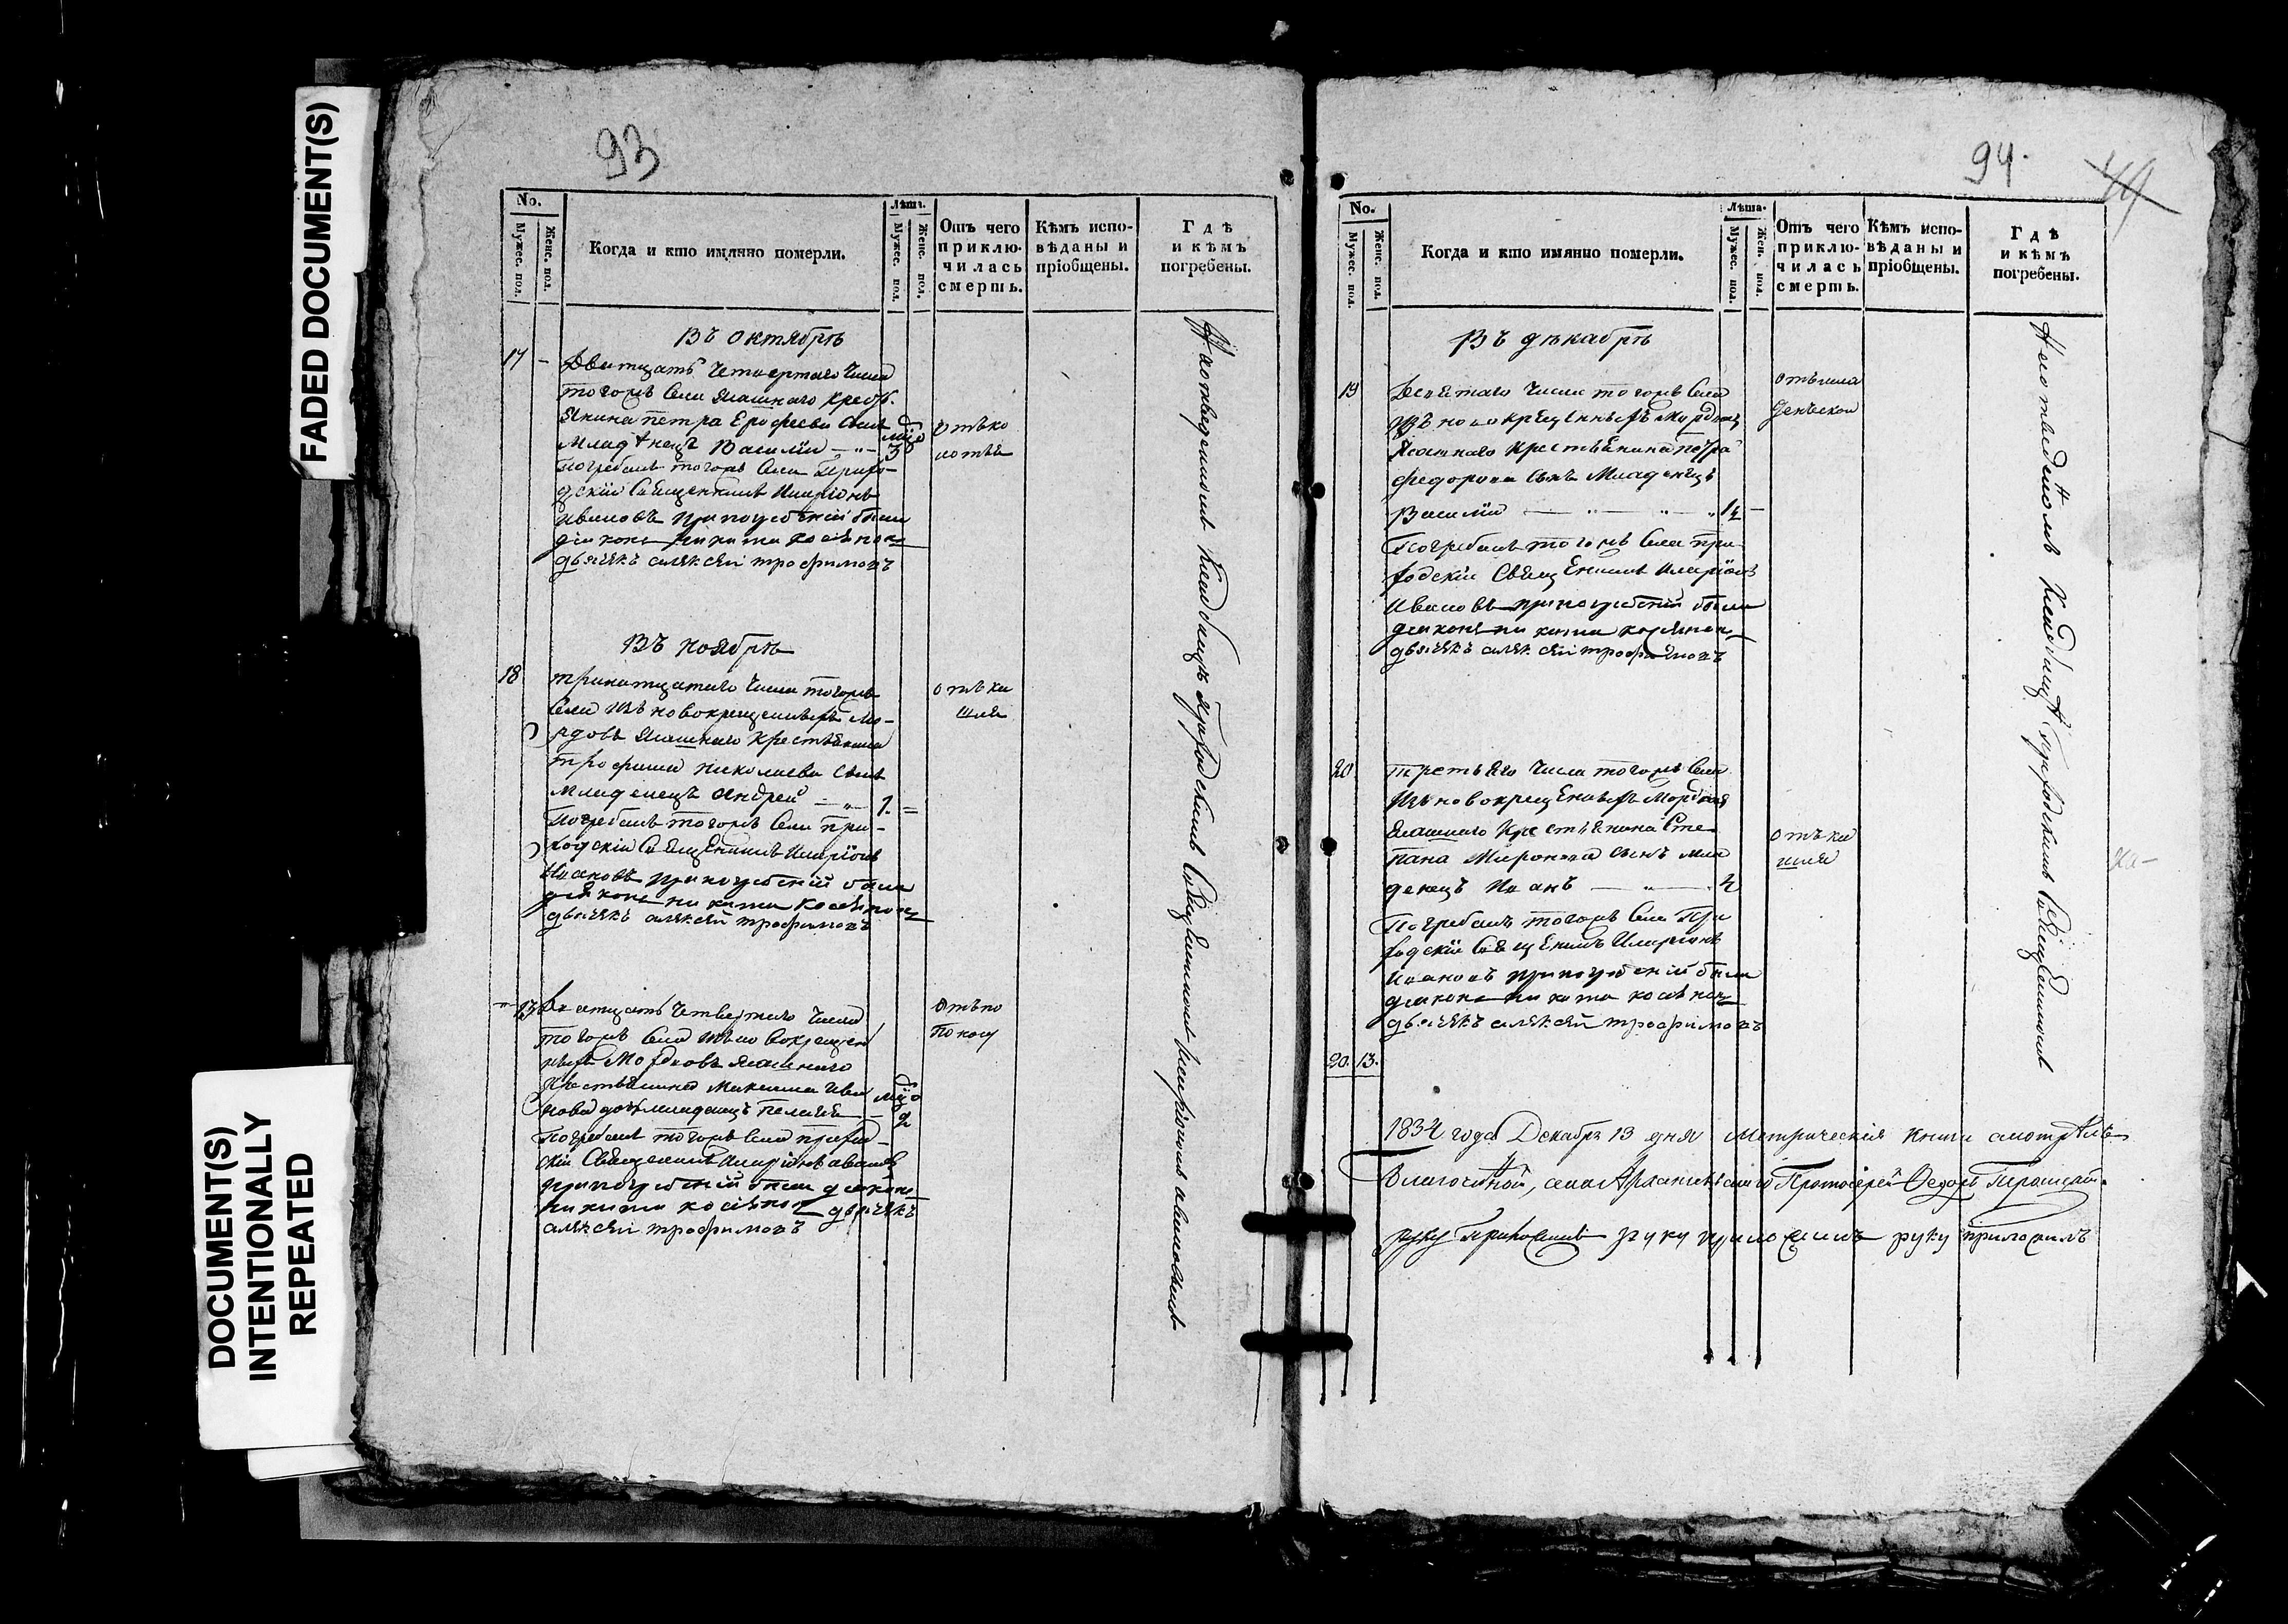 FADED DOCUMENT(S)
DOCUMENT(S)
INTENTIONALLY
REPEATED
93
No.
Мужес. пол.
Женс. пол.
Когда и кто имянно померли.
Лѣта.
Мужес. пол.
Женс. пол.
Отъ чего
приклю-
чилась
смерть.
Кѣмъ испо-
вѣданы и
пріобщены.
Гдѣ
и кѣмъ
погребены.
Въ октябрѣ
17 -
Дватцать четвертаго числа
тогожъ села ясашнаго крест.
янина петра Ерофеева сынъ
младенецъ Василій
3
отъ ко
лотья
погребалъ тогожъ села прихо-
дскій священникъ Иларіонъ
Ивановъ при погребеніи были
діаконъ никита
дьячекъ алексей трофимовъ
Въ ноябрѣ
18
тринатцатаго числа тогожъ
села изъ новокрещеныхъ мо-
рдовъ ясашнаго крестьянина
трофима николаева сынъ
младенецъ андрей 1.
отъ ка
шля
погребалъ тогожъ села при-
ходскій священникъ Иларіонъ
Ивановъ при погребеніи были
діаконъ никита
дьячекъ алексей трофимовъ
13
Дватцать четвертаго числа
тогожъ села изъ новокрещен
ныхъ Мордовъ ясашнаго
крестьянина Максима ива
нова дочь младенецъ
отъ по
носу
погребалъ тогожъ села прихо-
скій священникъ иларіонъ ивановъ
при погребеніи были діаконъ
никита дьячекъ
алексей трофимовъ
На отведенномъ кладбищѣ приходскимъ священникомъ иларіономъ ивановымъ
94.
44
No.
Мужес. пол.
Женс. пол.
Когда и кто имянно померли.
Лѣта.
Мужес. пол.
Жен. пол.
Отъ чего
приклю-
чилась
смерть.
Кѣмъ испо-
вѣданы и
пріобщены.
Гдѣ
и кѣмъ
погребены.
Въ декабрѣ
19
Десятаго числа тогожъ села
изъ новокрещенныхъ мордовъ
Ясашнаго крестьянина петра
федорова сынъ младенецъ
Василій
погребалъ тогожъ села при
ходскій священникъ Иларіонъ
Ивановъ при погребеніи были
діаконъ никита
дьячекъ алексей трофимовъ
20
третьяго числа тогожъ села
изъ новокрещеныхъ Мордовъ
ясашнаго крестьянина Сте
пана Миронова сынъ мла
денецъ Иванъ
отъ ка
шля
погребалъ тогожъ села При
ходскій священникъ Иларіонъ
Ивановъ при погребеніи были
діаконъ никита
дьячекъ алексей трофимовъ
20. 13.
На отведенномъ кладбищѣ приходскимъ священникомъ
1834 года Декабря 13 дня Метрическія книги смотрѣлъ
Благочинной, села Протоіерей Федоръ
руку приложилъ руку приложилъ руку приложилъ